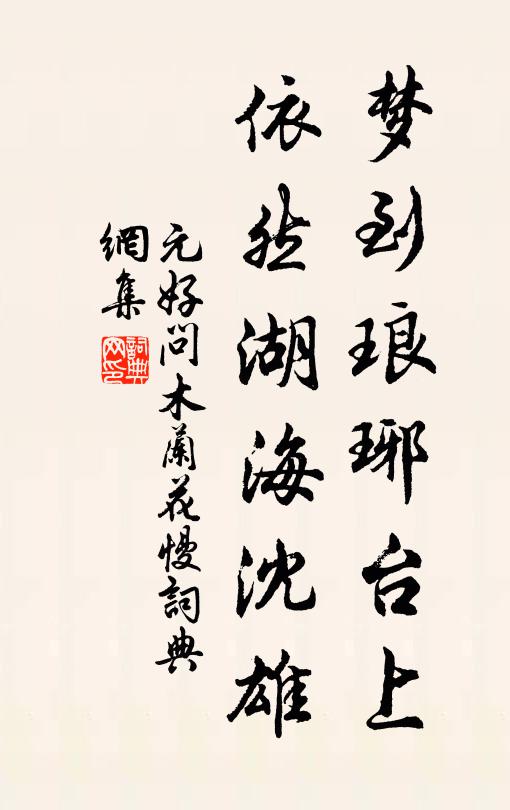 梦到琅琊台上
依然湖海沈雄
元好问木蘭花慢詞典
網集
詞典
网印